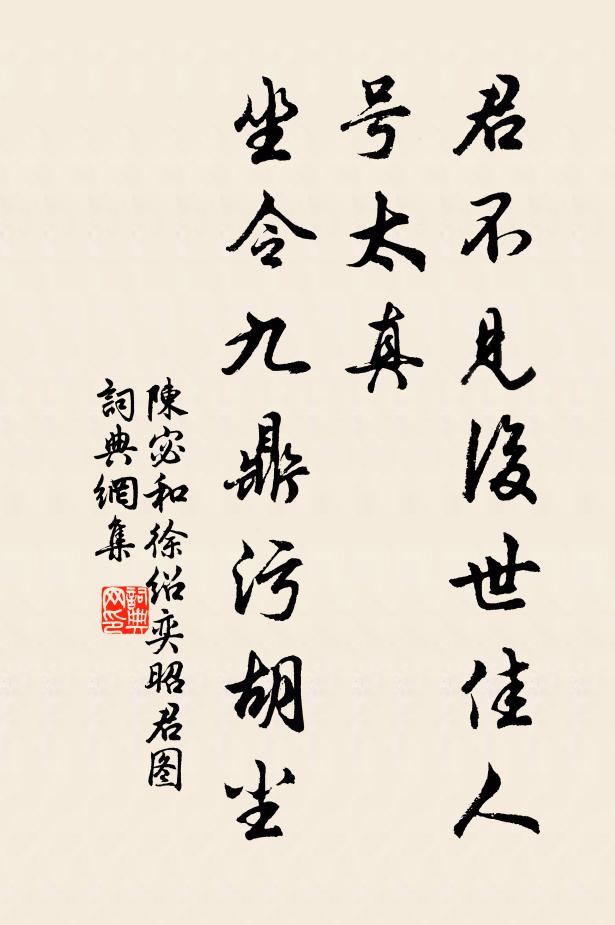 君不見後世佳人
号太真
坐令九鼎污胡尘
陳宓和徐紹奕昭君图
詞典網集
詞典
网印